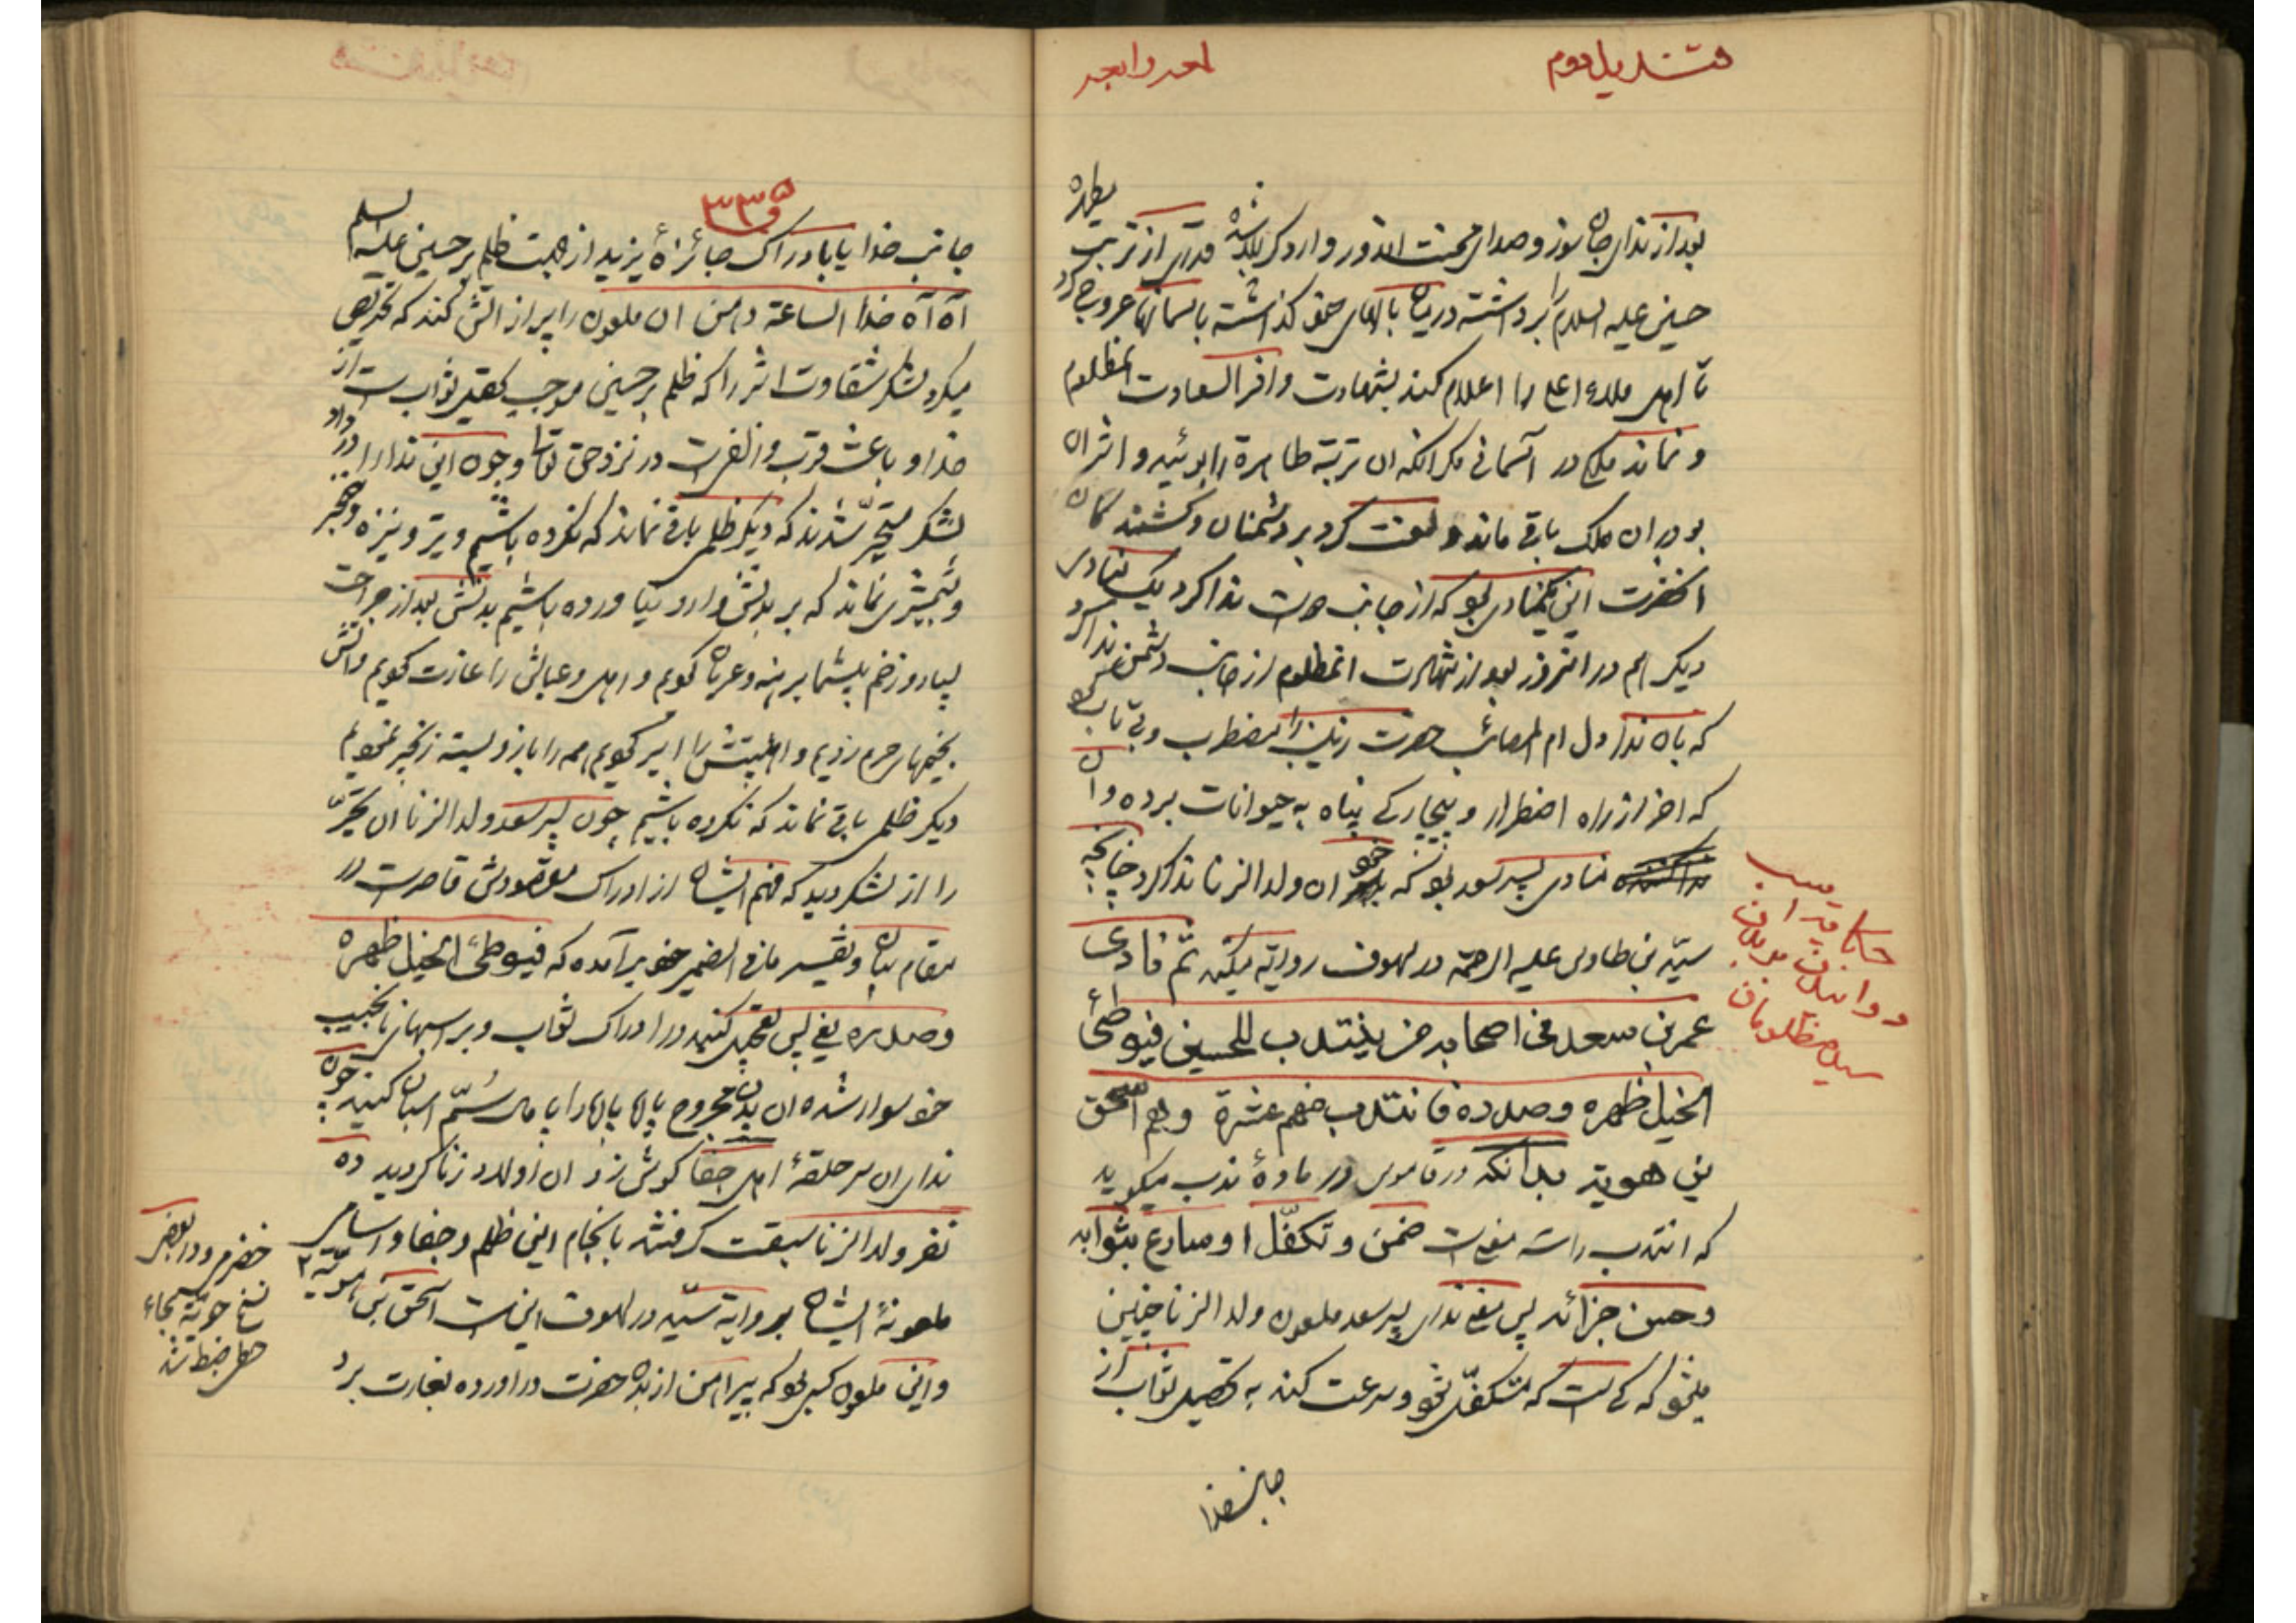 قندیل دوم
بعد از ندای جان سوز و صدای محنت اندوز وارد کربلا شده قدری از تربت مطهره
حسین علیه السلام را برداشته در میان بالهای خود گذاشته باسمانها عروج کرد
تا اهل ملاء اعلی را اعلام کند بشهادت وافر السعادت انمظلوم
و نماند ملکی در آسمانی مگر انکه ان تربة طاهرة را بوئید و اثر ان
بو در ان ملک باقی ماند و لعنت کرد بر دشمنان و کشندگان
انحضرت این یکمنادی بود که از جانب دوست ندا کرد یک منادی
دیگر هم در انروز بعد از شهادت انمظلوم از جانب دشمن ندا کرد
که بان ندا دل ام المصائب حضرت زینب را مضطرب و بی تاب
که اخر از راه اضطرار و بیچارگی پناه به حیوانات برده و ان
منادی پسر سعد بود که خود ان ولد الزنا ندا کرد چنانچه
سیّد بن طاوس علیه الرحمة در لهوف روایة میکند ثمّ نادی
عمر بن سعد فی اصحابه من ینتدب للحسین فیوطئ
الخیل ظهره و صدره فانتدب منهم عشرة و هم اسحق
بن هویة بدانکه در قاموس در مادهٔ ندب میگوید
که انتدب راست بمعنی ضمن و تکفّل او و سارع بثوابه
و حسن جزائه پس معنی ندای پسر سعد ملعون ولد الزنا چنین
میشود که کی است که متکفّل شود و سرعت کند به تحصیل ثواب از
جانب خدا
۳۳۵
جانب خدا یا بادراک جائزهٔ یزید از جهت ظلم بر حسین علیه السلم
آه آه خدا الساعة دامن ان ملعون را پر از اتش کند که تحریص
میکرد لشکر شقاوت اثر را که ظلم بر حسین موجب تحصیل ثواب است از
خدا و باعث قرب و زلفی است در نزد حق تعالی و چون این ندا را در داد
لشکر متحیّر شدند که دیگر ظلمی باقی نماند که نکرده باشیم و تیر و نیزه و خنجر
و شمشیری نماند که بر بدنش وارد نیاورده باشیم بدنش بعد از جراحت
بسیار و زخم بیشمار برهنه و عریان نمودیم و اهل و عیالش را غارت نمودیم و اتش
بخیمهای حرم زدیم و اهلبیتش را اسیر نمودیم همه را بازو بسته زنجیر نمودیم
دیگر ظلمی باقی نماند که نکرده باشیم چون پسر سعد ولد الزنا ان تحیّر
را از لشکر دید که فهم ایشان از ادراک مقصودش قاصر است در
مقام بیان و تفسیر مافی الضمیر خود برآمده که فیوطئ الخیل ظهره
و صدره یعنی پس تعجیل کنید در ادراک ثواب و بر اسبهای نجیب
خود سوار شده ان بدن مجروح پاره پاره را پامال سُمّ اسبان کنید چون
ندای ان سر حلقهٔ اهل جفا گوش زد ان اولاد زنا گردید ده
نفر ولد الزنا سبقت گرفتند بانجام این ظلم و جفا و اسامی
ملعونهٔ ایشان بروایة سیّد در لهوف این است اسحق بن هویّة
و این ملعون کسی بود که پیراهن از بدن حضرت در اورده بغارت برد